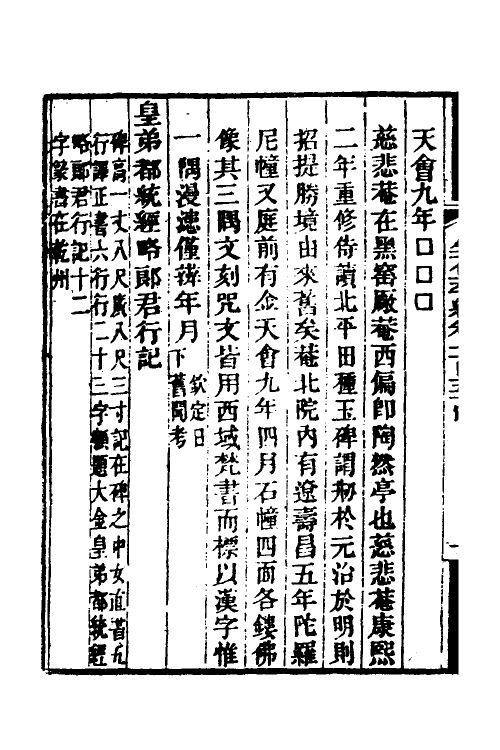 天會九年□□□
慈悲菴在黑窰厰菴西偏卽陶然亭也慈悲菴康熙
二年重修侍讀北平田種玉碑謂刱於元治於明則
招提勝境由來舊矣菴北院內有遼壽昌五年陀羅
尼幢又庭前有金天會九年四月石幢四面各鏤佛
像其三隅文刻咒文皆用西域梵書而標以漢字惟
一隅漫漶僅辨年月欽定日
下舊聞考
皇弟都統經略郞君行記
碑高一丈八尺廣八尺三寸記在碑之中女直書五
行譯正書六行行二十三字額題大金皇弟都統經
略郞君行記十二
字篆書在乾州